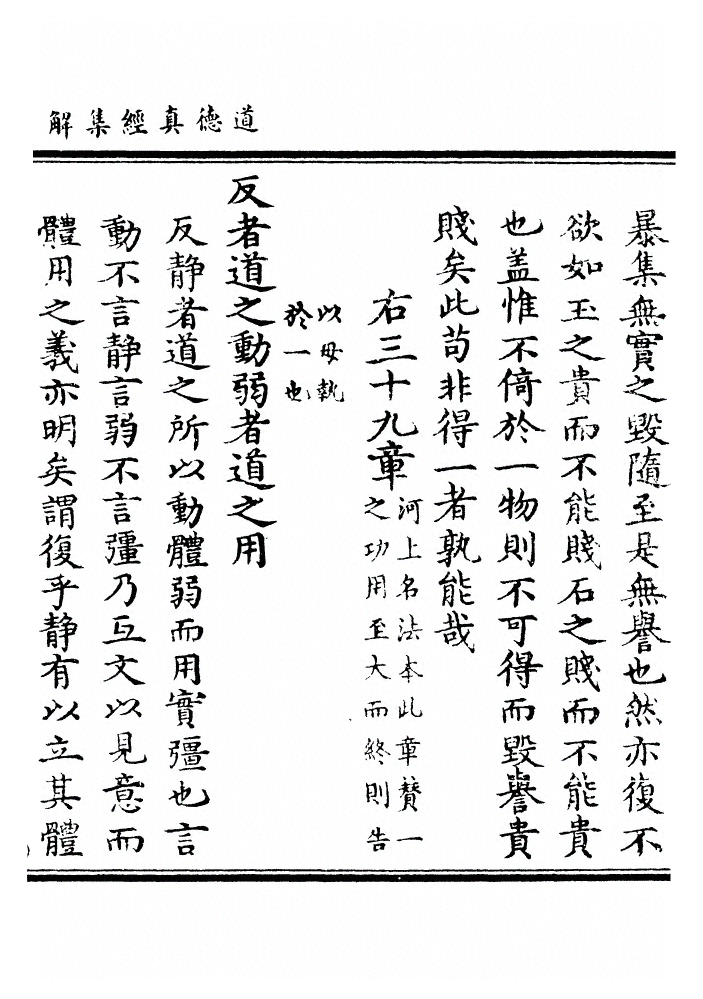 道德真經集解
暴集無實之毀隨至是無譽也然亦復不
欲如玉之貴而不能賤石之賤而不能貴
也盖惟不倚於一物則不可得而毀譽貴
賤矣此苟非得一者孰能哉
右三十九章
河上名法本此章賛一
之功用至大而終則告
以毋執
於一也
反者道之動弱者道之用
反静者道之所以動體弱而用實彊也言
動不言静言弱不言彊乃互文以見意而
體用之義亦明矣謂復乎静有以立其體